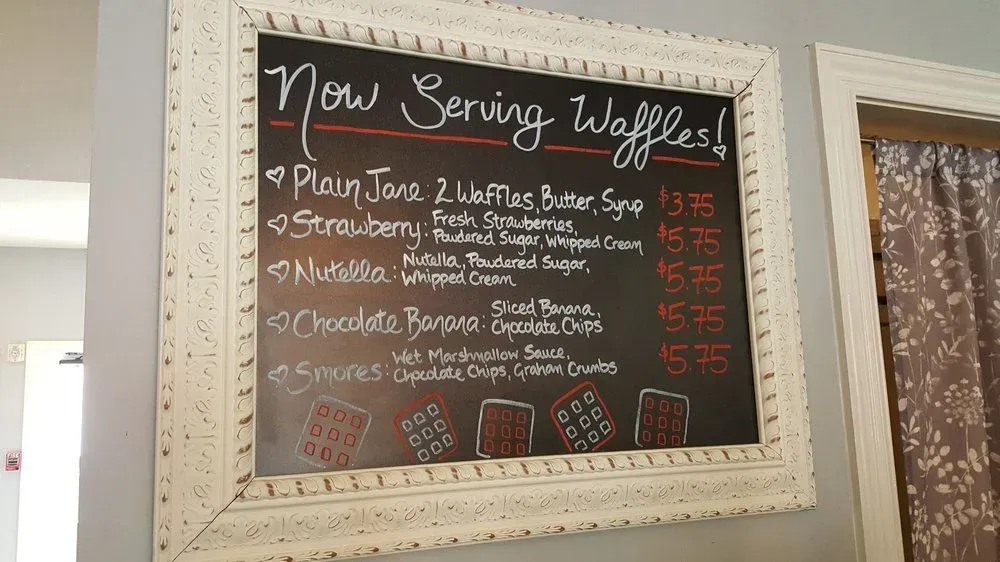 Now Serving Waffles!
Plain Jane: 2 Waffles, Butter, Syrup $3.75
Strawberry: Fresh Strawberries,
Powdered Sugar, Whipped Cream $5.75
Nutella: Nutella, Powdered Sugar,
Whipped Cream $5.75
Chocolate Banana: Sliced Banana,
Chocolate Chips $5.75
Smores: Wet Marshmallow Sauce,
Chocolate Chips, Graham Crumbs $5.75